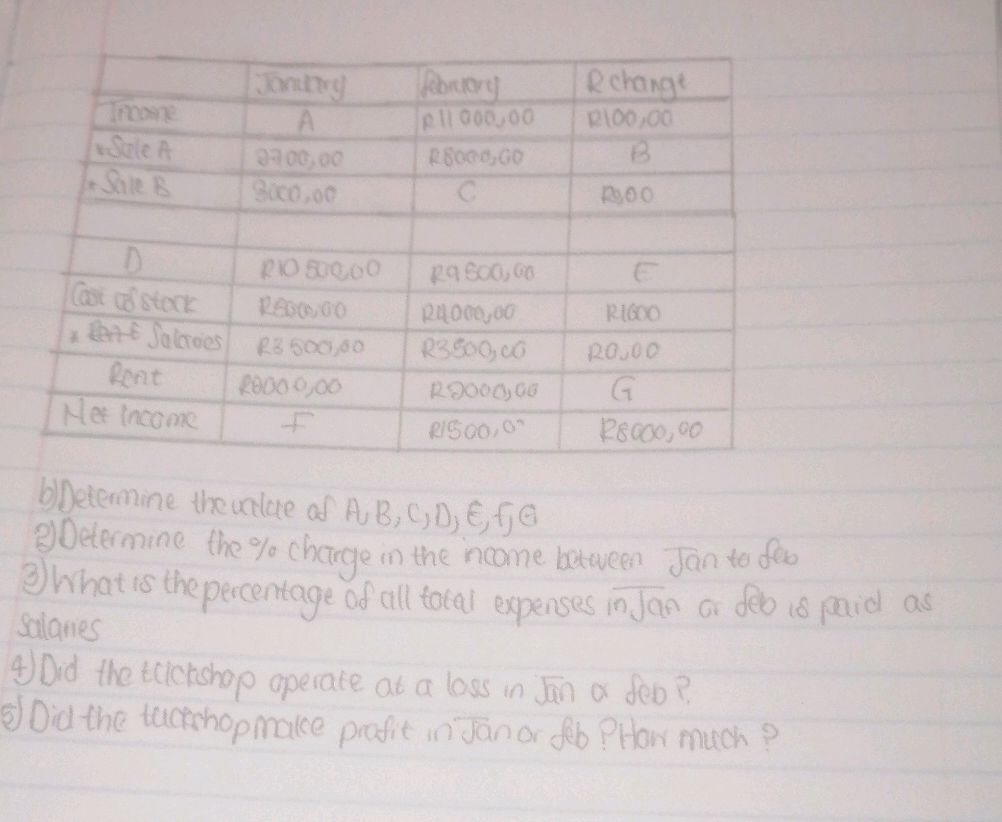 January February R change
Income A R11 000,00 R100,00
* Sale A 2700,00 R8000,00 B
* Sale B 3000,00 C R300
D R10 500,00 R9 500,00 E
Cost of stock R5000,00 R4000,00 R1000
* Salaries R3 500,00 R3500,00 R0,00
Rent R2000,00 R2000,00 G
Net Income F R1500,0 R8000,00
b) Determine the value of A, B, C, D, E, f, G
2) Determine the % change in the income between Jan to feb
3) What is the percentage of all total expenses in Jan or feb is paid as
salaries
4) Did the tuckshop operate at a loss in Jan or feb?
5) Did the tuckshop make profit in Jan or feb? How much?